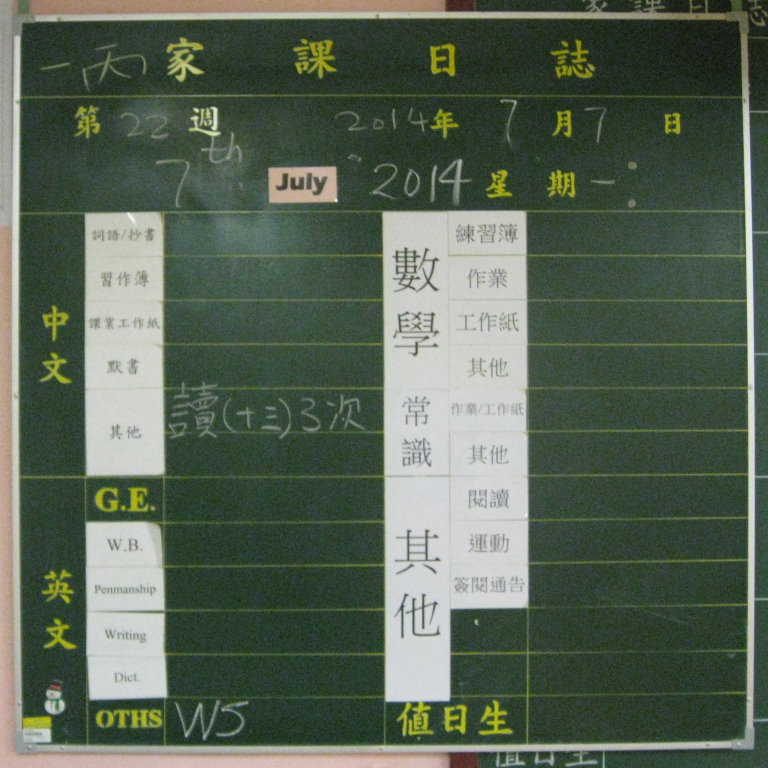 一丙 家課日誌
第 22 週 2014 年 7 月 7 日
7th July 2014 星期 一
中文
詞語/抄書
習作簿
課業工作紙
默書
其他 讀(十三)3次
英文
G.E.
W.B.
Penmanship
Writing
Dict.
OTHS W5
數學
練習簿
作業
工作紙
其他
常識
作業/工作紙
其他
其他
閱讀
運動
簽閱通告
值日生
家課日誌
值日生